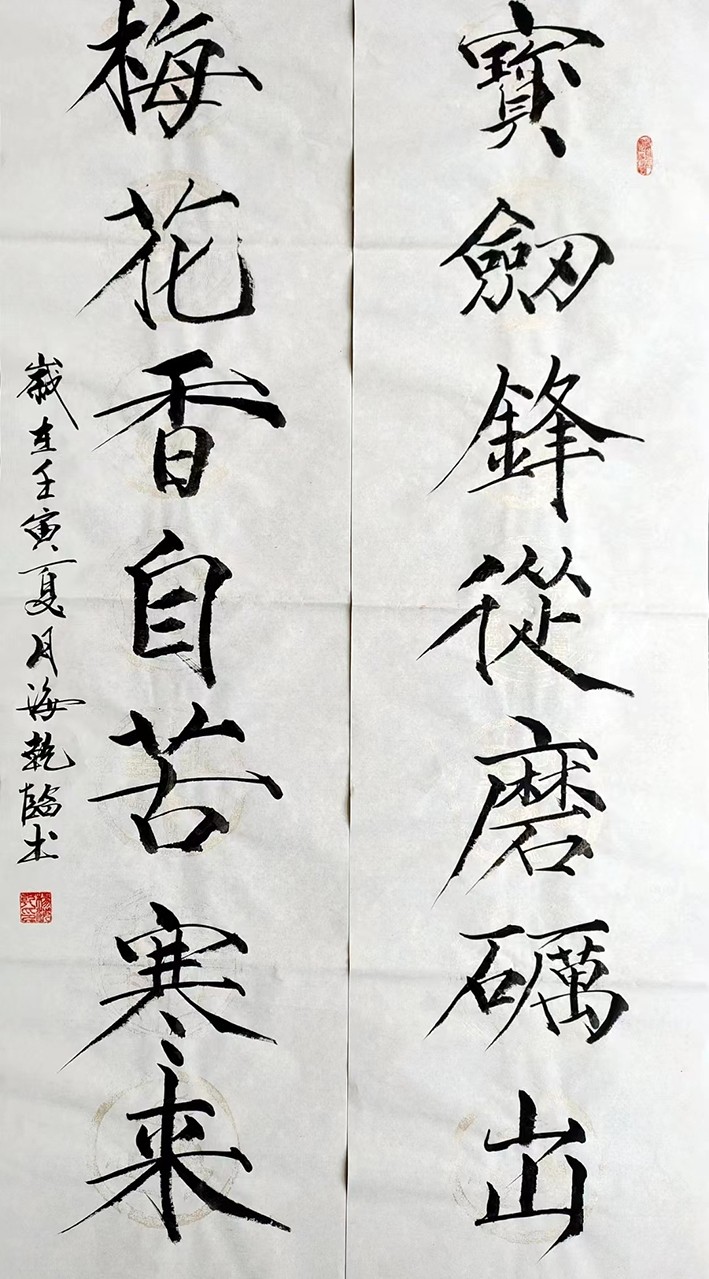 寶劔鋒從磨礪出
梅花香自苦寒来
歲在壬寅夏月海乾臨书